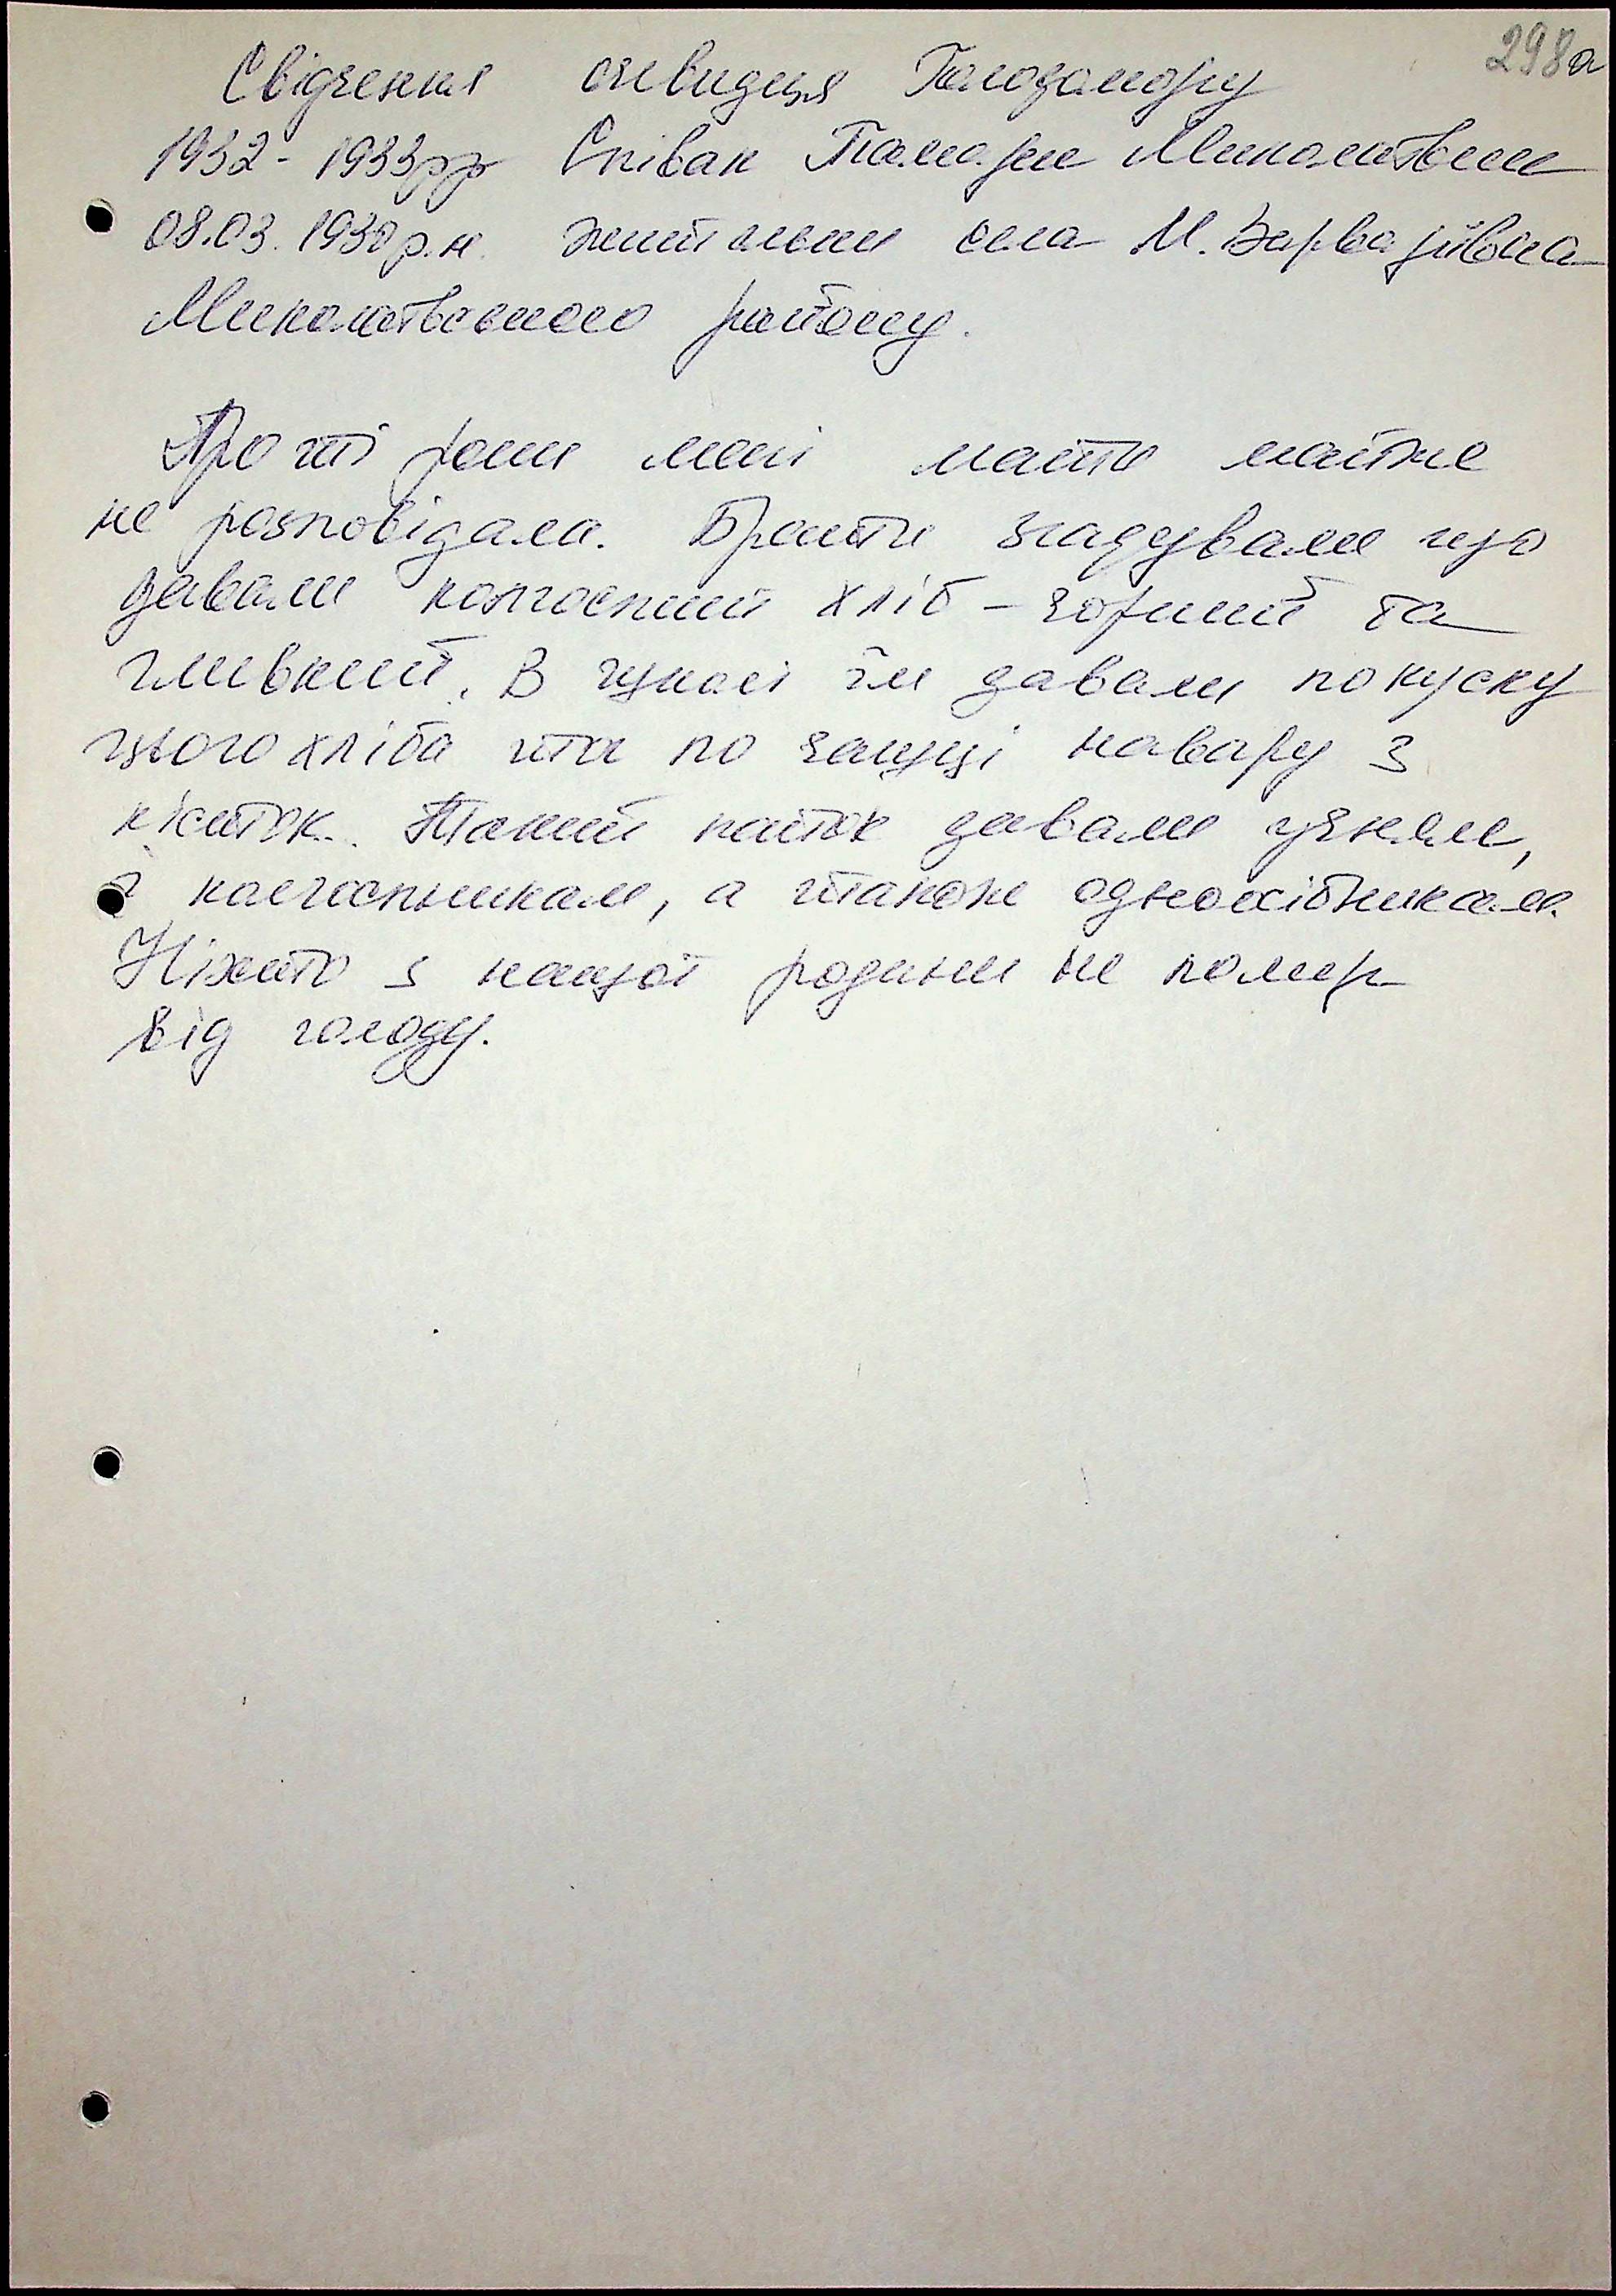 298а
Свідчення очевидця Голодомору
1932 - 1933рр Співак Тамари Миколаївни
08.03.1930р.н. жительки села М. Варварівка
Миколаївського району.
Про ті роки мені мати майже
не розповідала. Брати згадували що
давали колгоспний хліб - чорний та
гливкий. В школі їм давали по куску
цього хліба та по чашці навару з
кісток. Такий пайок давали учням,
і колгоспникам, а також одноосібникам.
Ніхто з нашої родини не помер
від голоду.